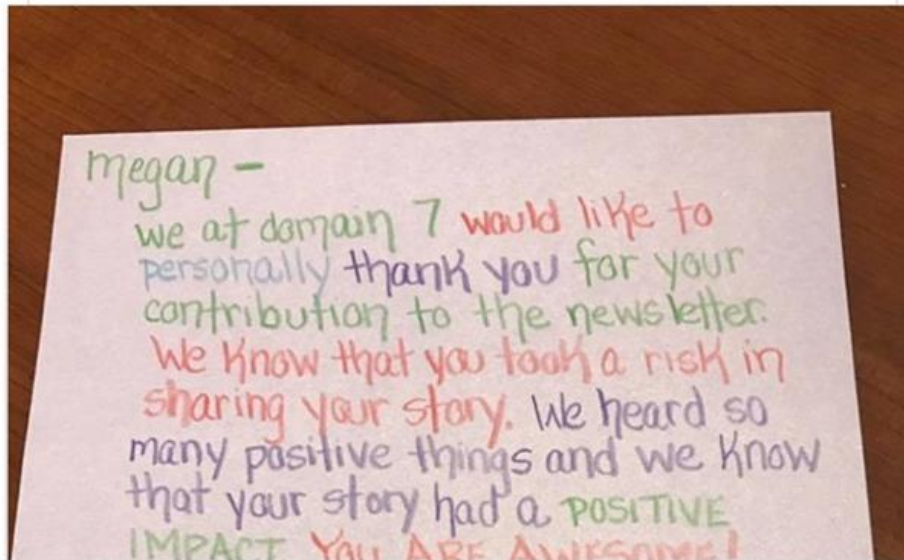 megan -
we at domain 7 would like to
personally thank you for your
contribution to the newsletter.
We know that you took a risk in
sharing your story. We heard so
many positive things and we know
that your story had a POSITIVE
IMPACT YOU ARE AWESOME!